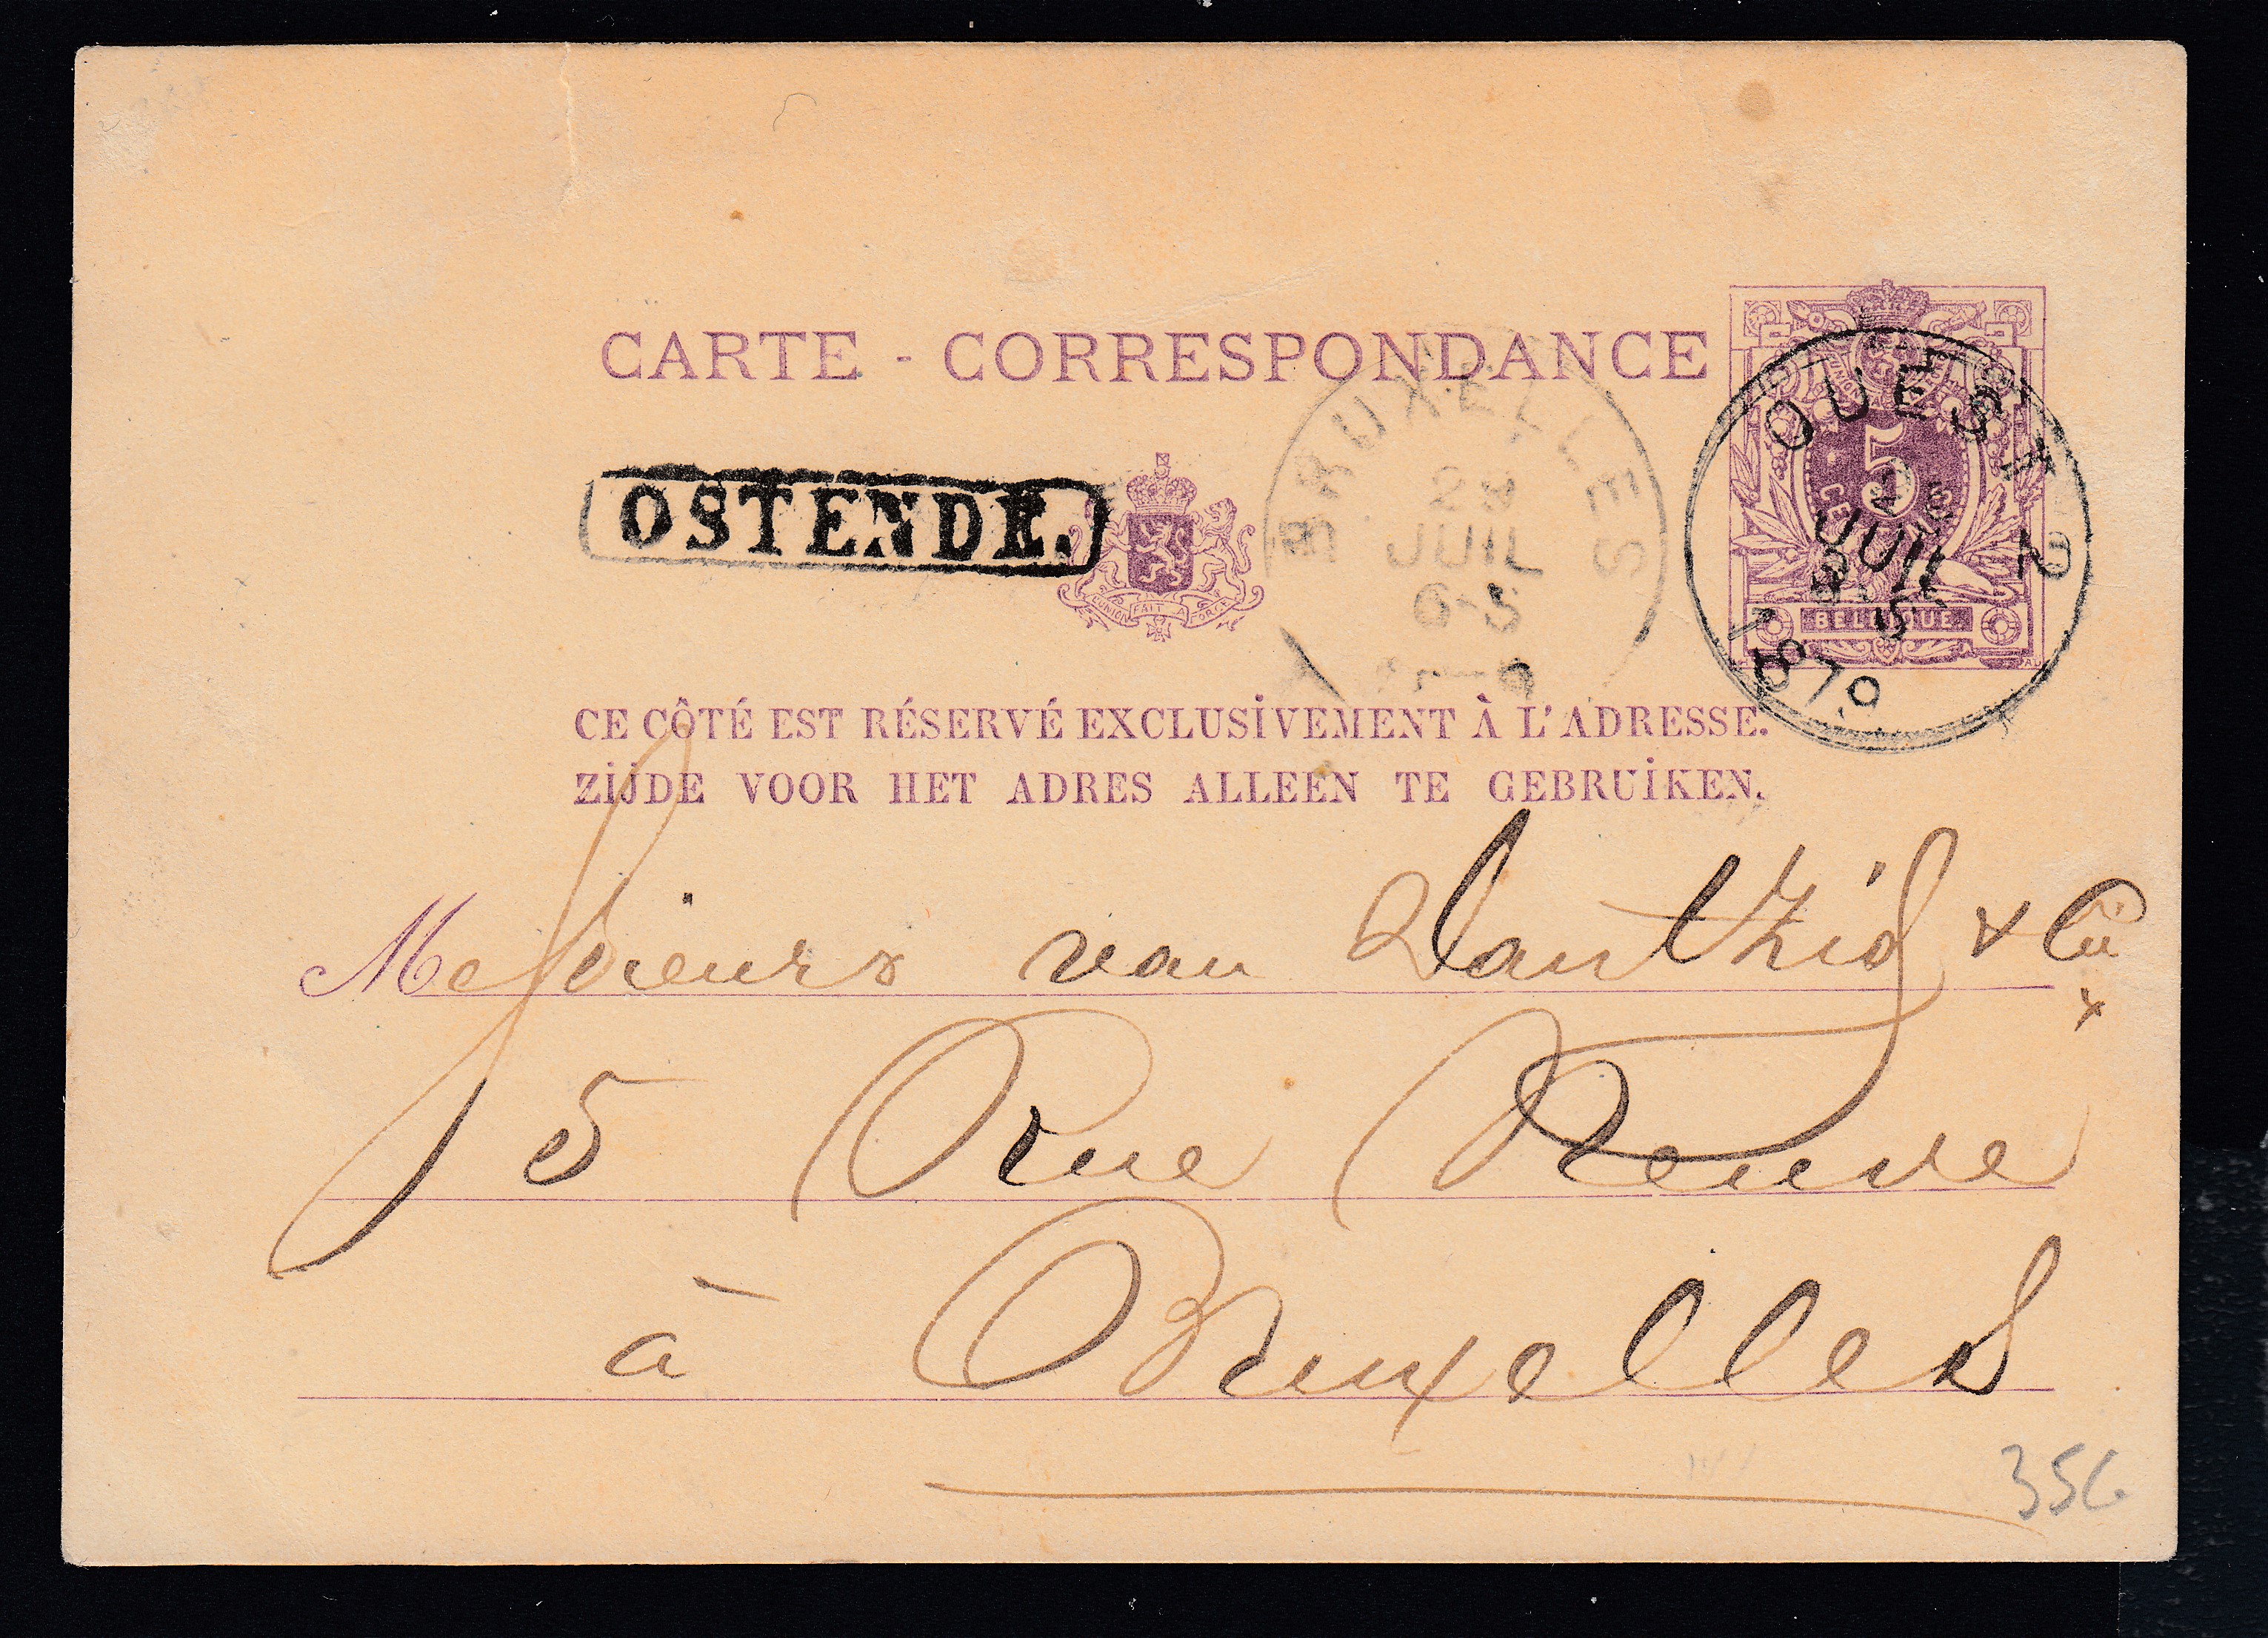 CARTE - CORRESPONDANCE
5
BELGIQUE
OUEST 2
JUIL
5
1879
BRUXELLES
JUIL
6-S
OSTENDE.
L'UNION FAIT LA FORCE
CE CÔTÉ EST RÉSERVÉ EXCLUSIVEMENT À L'ADRESSE.
ZIJDE VOOR HET ADRES ALLEEN TE GEBRUIKEN.
Messieurs van Dantzig & Cie
5 Rue Neuve
à Bruxelles
356